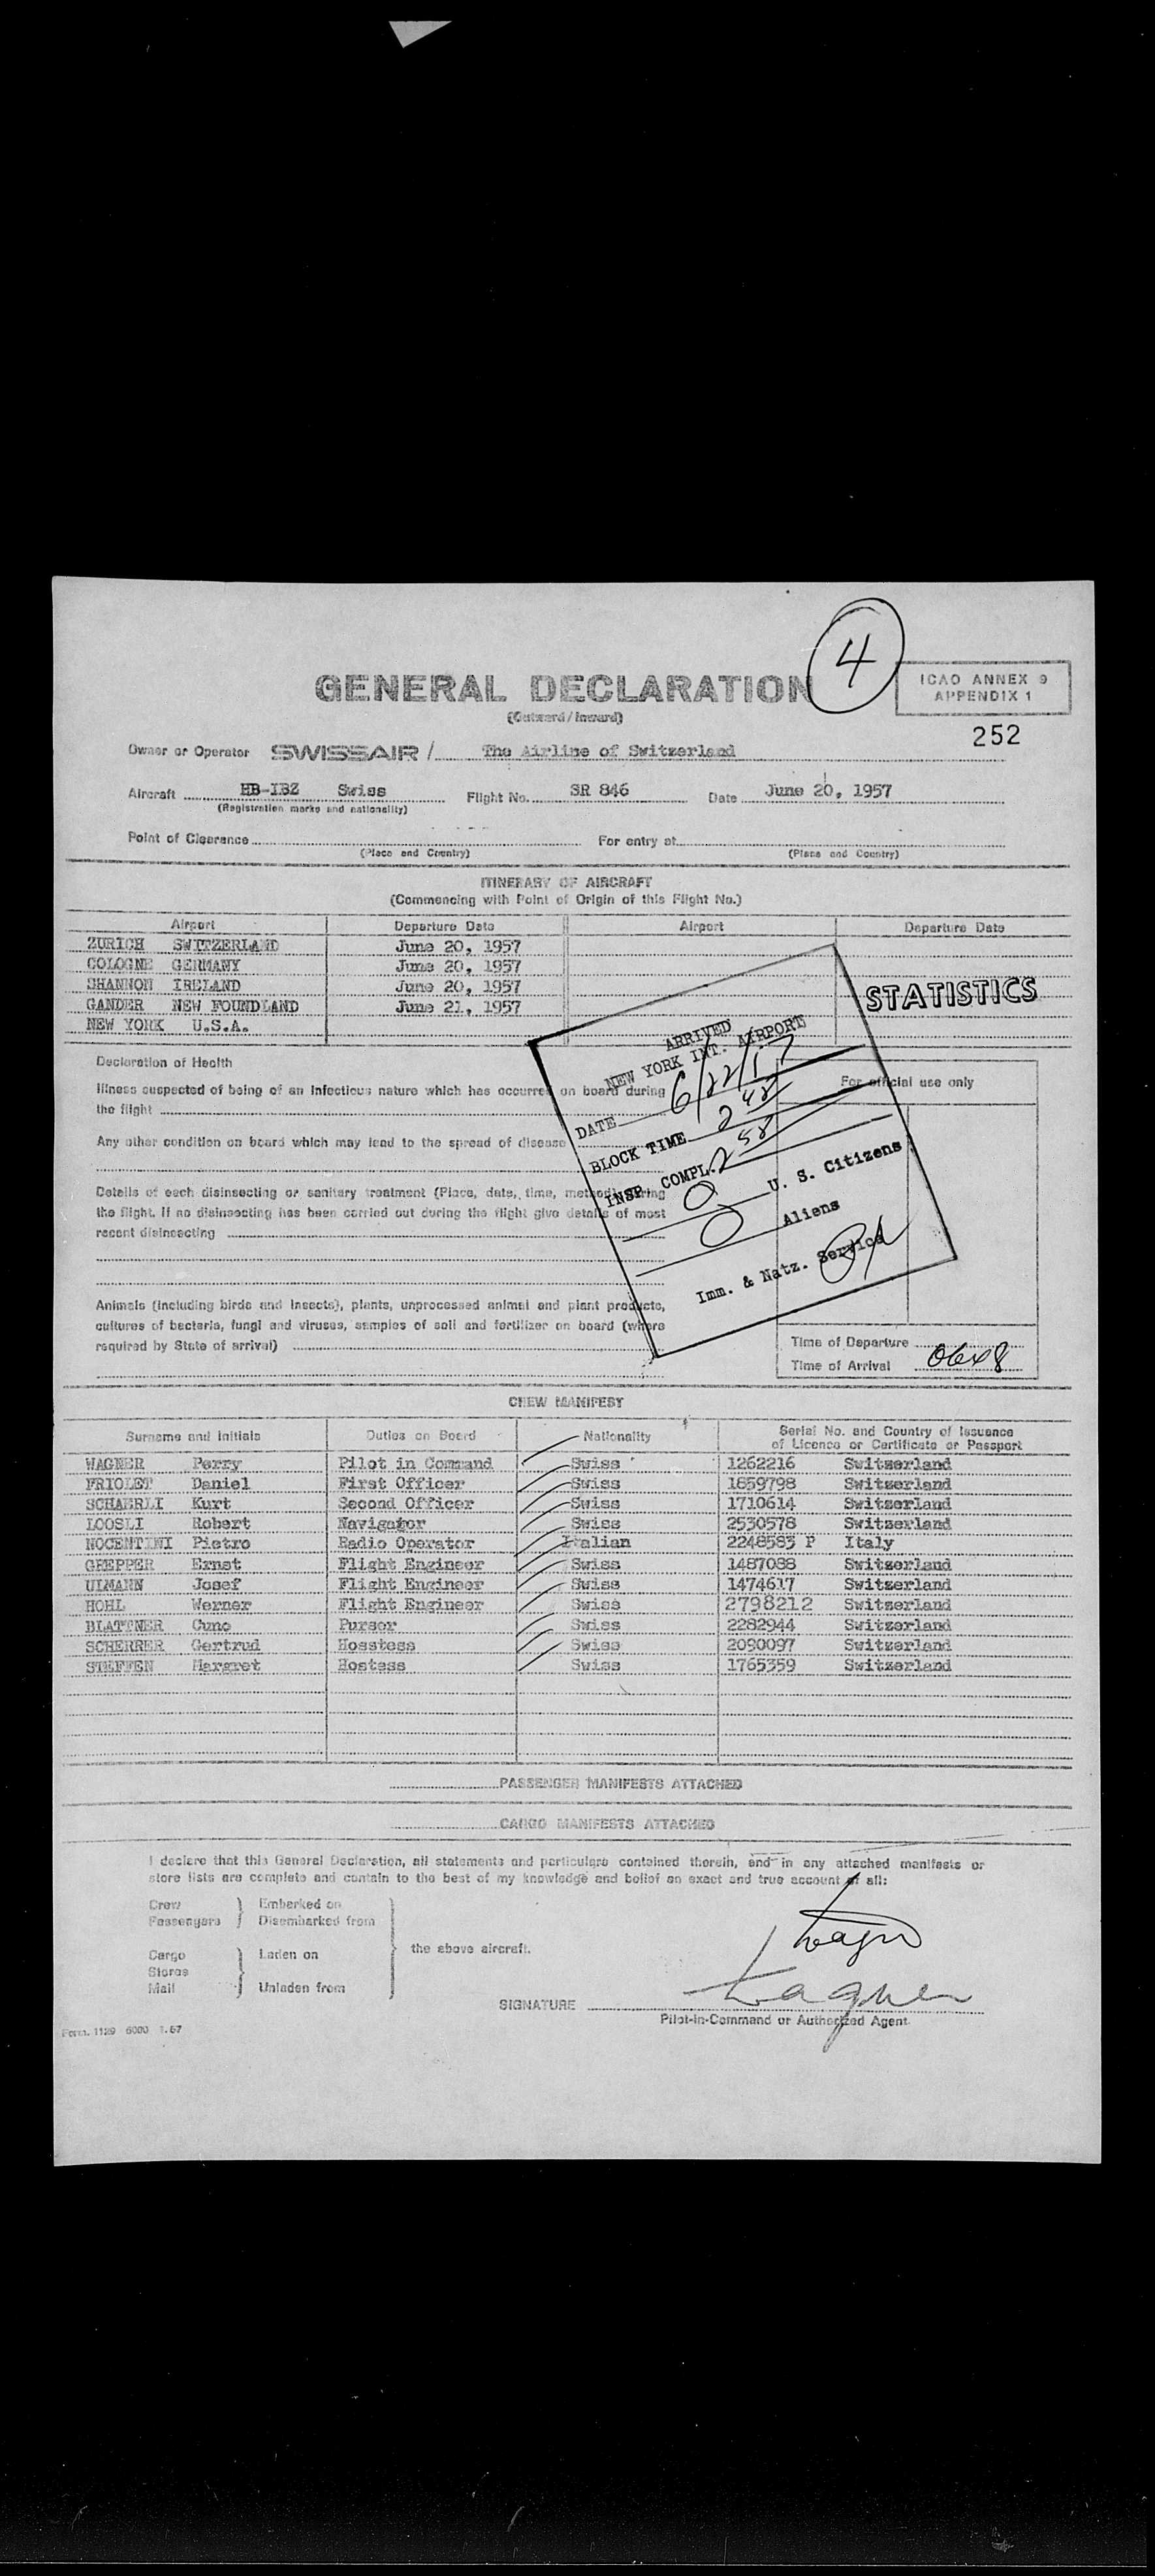 4
GENERAL DECLARATION
(Outward/Inward)
ICAO ANNEX 9
APPENDIX 1
252
Owner or Operator SWISSAIR / The Airline of Switzerland
Aircraft HB-IBZ Swiss Flight No. SR 846 Date June 20, 1957
(Registration marks and nationality)
Point of Clearance For entry at
(Place and Country) (Place and Country)
ITINERARY OF AIRCRAFT
(Commencing with Point of Origin of this Flight No.)
Airport Departure Date Airport Departure Date
ZURICH SWITZERLAND June 20, 1957
COLOGNE GERMANY June 20, 1957
SHANNON IRELAND June 20, 1957
GANDER NEW FOUNDLAND June 21, 1957
NEW YORK U.S.A.
STATISTICS
ARRIVED
NEW YORK INT. AIRPORT
DATE
BLOCK TIME 2 48
INSP. COMPL. 2 58
0 U. S. Citizens
0 Aliens
Imm. & Natz. Service
Declaration of Health
Illness suspected of being of an infectious nature which has occurred on board during
the flight
Any other condition on board which may lead to the spread of disease
Details of each disinsecting or sanitary treatment (Place, date, time, method) during
the flight. If no disinsecting has been carried out during the flight give details of most
recent disinsecting
Animals (including birds and insects), plants, unprocessed animal and plant products,
cultures of bacteria, fungi and viruses, samples of soil and fertilizer on board (where
required by State of arrival)
For official use only
Time of Departure
Time of Arrival 0648
CREW MANIFEST
Surname and Initials Duties on Board Nationality Serial No. and Country of Issuance
of Licence or Certificate or Passport
WAGNER Perry Pilot in Command Swiss 1262216 Switzerland
FRIOLET Daniel First Officer Swiss 1859798 Switzerland
SCHAERLI Kurt Second Officer Swiss 1710614 Switzerland
LOOSLI Robert Navigator Swiss 2530578 Switzerland
NOCENTINI Pietro Radio Operator Italian 2248583 P Italy
GREPPER Ernst Flight Engineer Swiss 1487088 Switzerland
ULMANN Josef Flight Engineer Swiss 1474617 Switzerland
HOHL Werner Flight Engineer Swiss 2798212 Switzerland
BLATTNER Cuno Purser Swiss 2282944 Switzerland
SCHERRER Gertrud Hosstess Swiss 2090097 Switzerland
STEFFEN Margret Hostess Swiss 1765359 Switzerland
PASSENGER MANIFESTS ATTACHED
CARGO MANIFESTS ATTACHED
I declare that this General Declaration, all statements and particulars contained therein, and in any attached manifests or
store lists are complete and contain to the best of my knowledge and belief an exact and true account of all:
Crew Embarked on
Passengers Disembarked from
the above aircraft.
Cargo Laden on
Stores
Mail Unladen from
Wagner
SIGNATURE Wagner
Pilot-in-Command or Authorized Agent
Form. 1129 6000 1.57